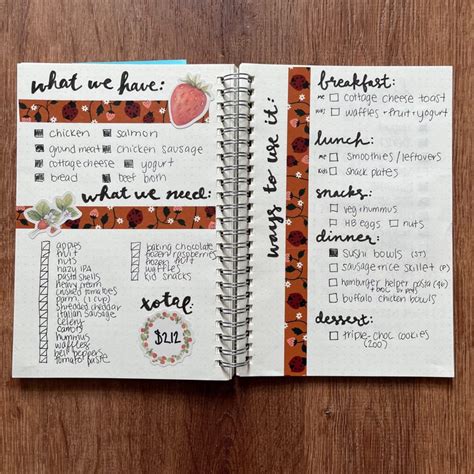 what we have:
chicken
salmon
ground meat
chicken sausage
cottage cheese
yogurt
bread
beef
what we need:
apples
fruit
nuts
hazy IPA
pasta shells
heavy cream
crushed tomatoes
parm (1 cup)
shredded cheddar
Italian sausage
celery
carrots
hummus
waffles
bell peppers
tomato paste
baking chocolate
frozen raspberries
frozen fruit
waffles
kid snacks
total:
$212
ways to use it:
breakfast:
ME
cottage cheese toast
waffles + fruit + yogurt
lunch:
ME
smoothies/leftovers
KIDS
snack plates
snacks:
veg + hummus
HB eggs
nuts
dinner:
sushi bowls
sausage + rice skillet
hamburger helper pasta
buffalo chicken bowls
dessert:
triple-choc cookies
(200)